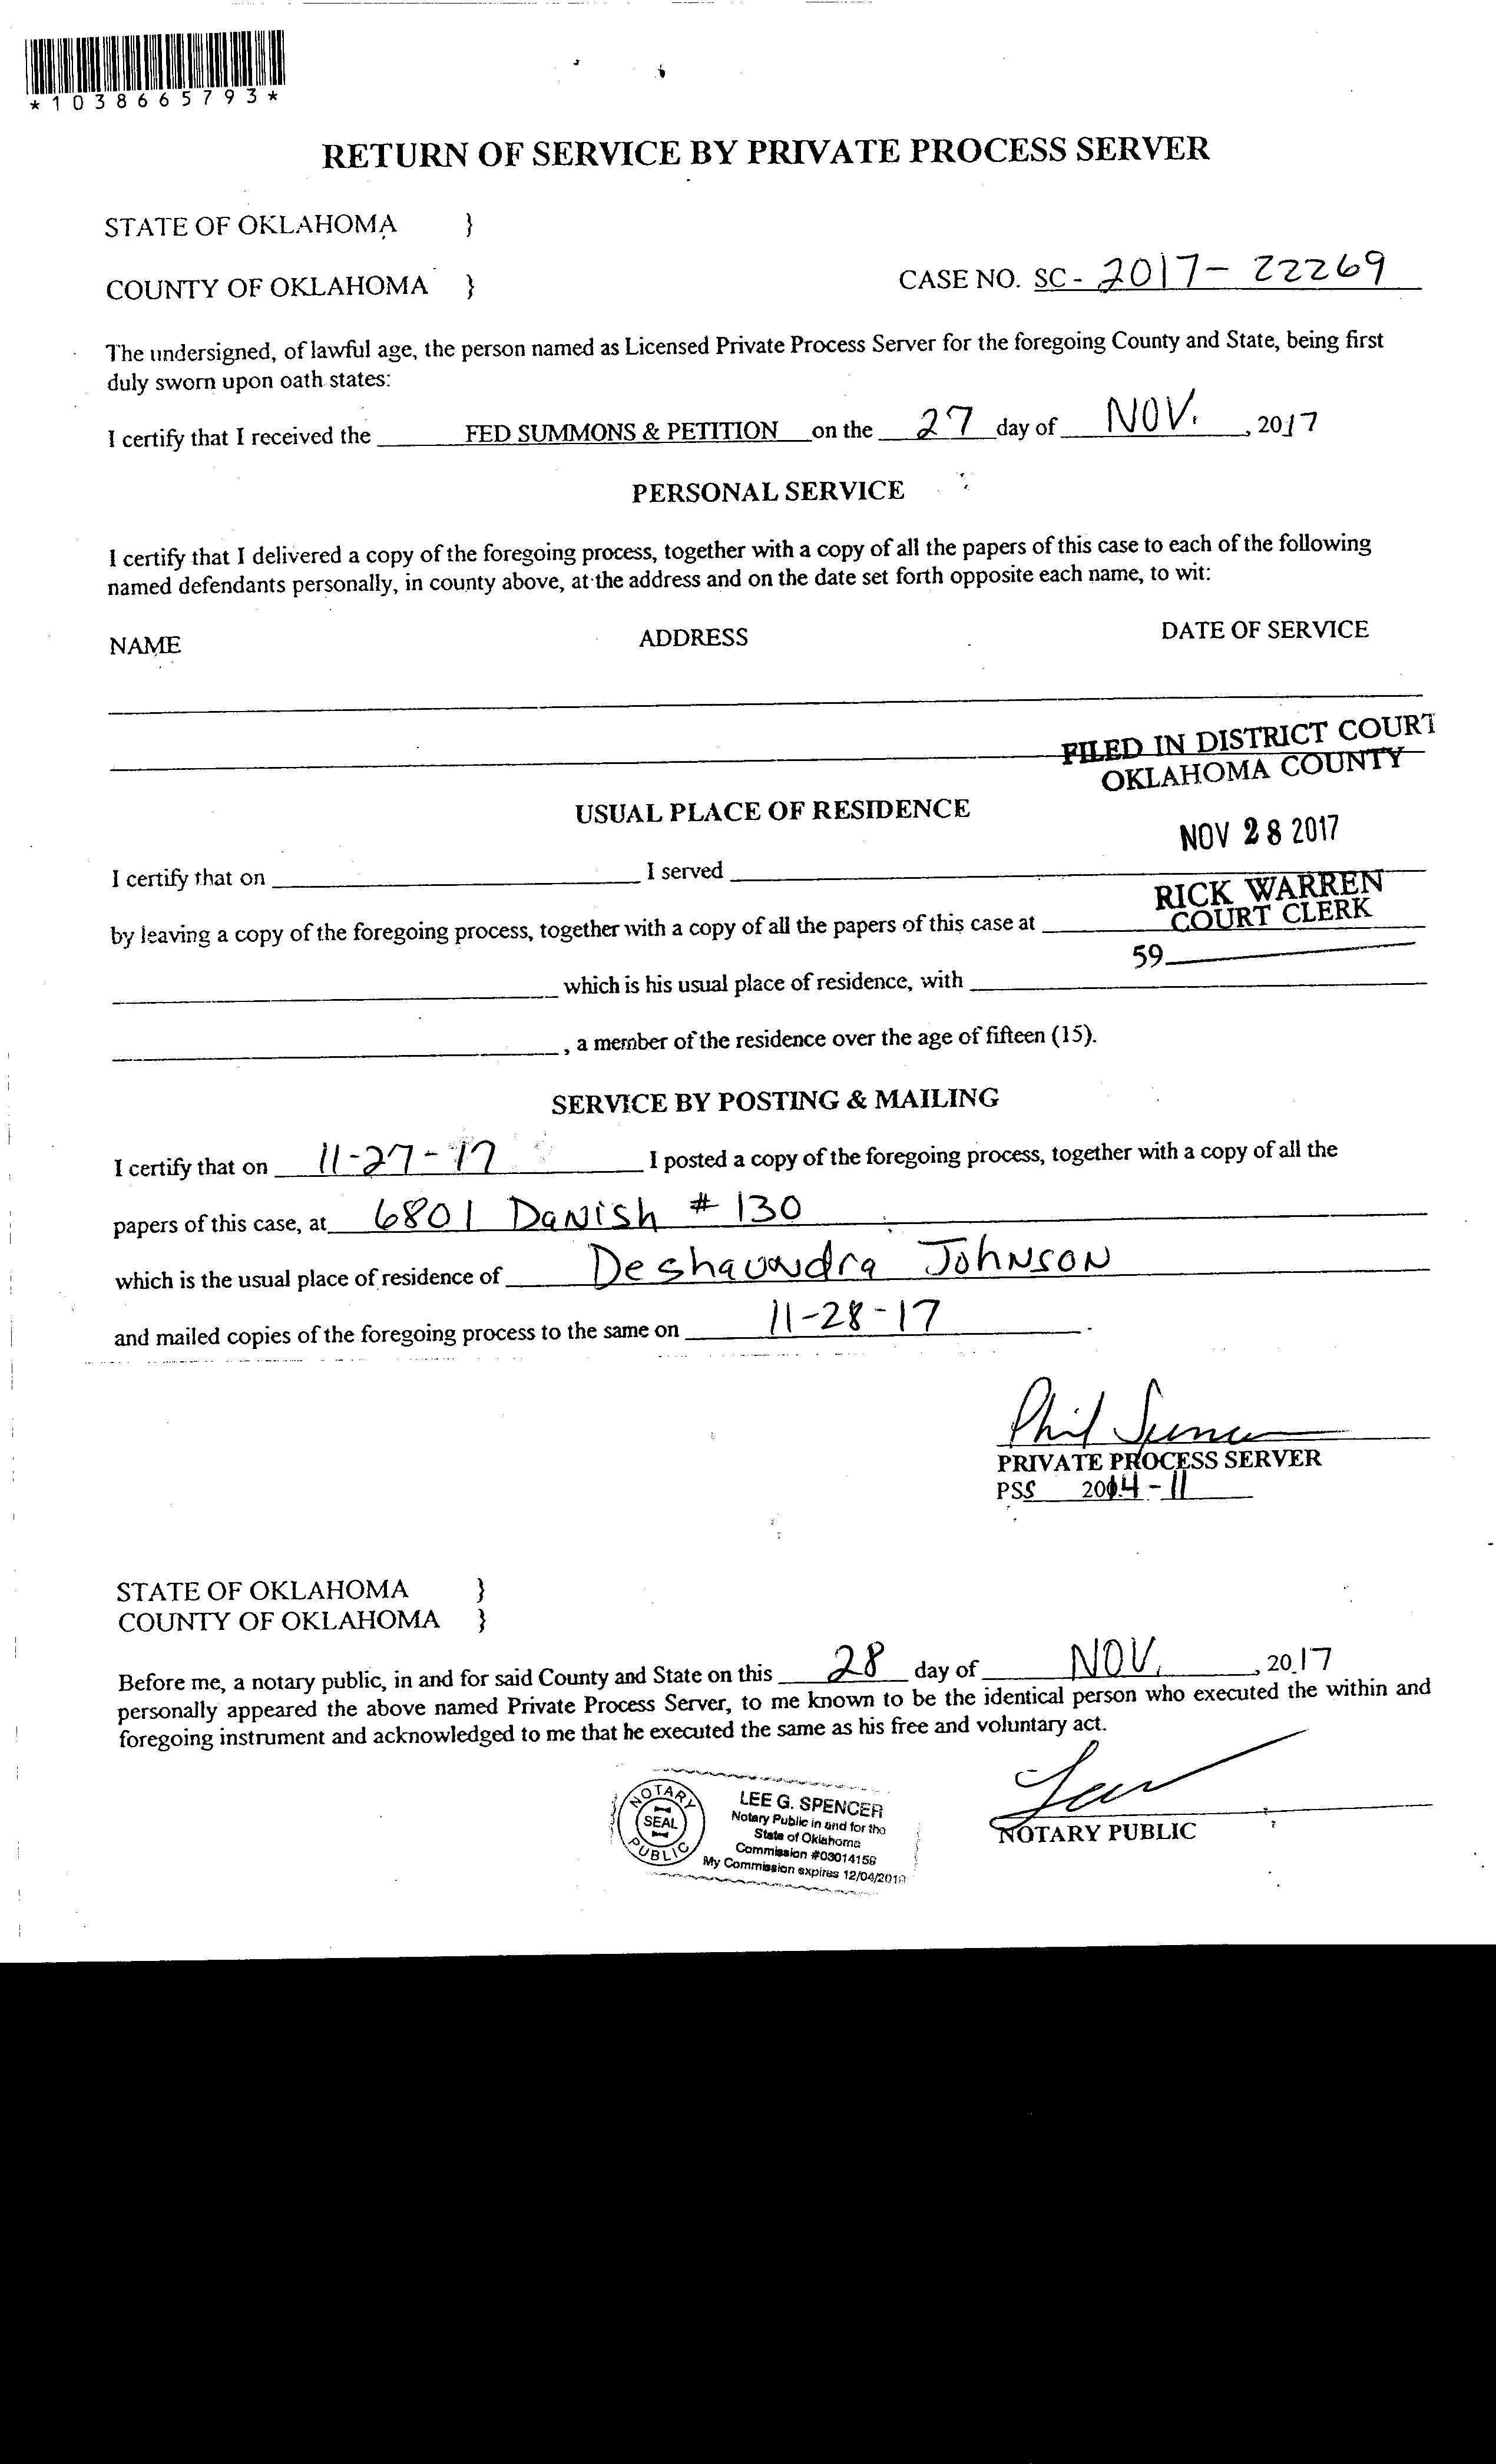 *1038665793*
RETURN OF SERVICE BY PRIVATE PROCESS SERVER
STATE OF OKLAHOMA }
COUNTY OF OKLAHOMA }
CASE NO. SC - 2017- 22269
The undersigned, of lawful age, the person named as Licensed Private Process Server for the foregoing County and State, being first
duly sworn upon oath states:
I certify that I received the FED SUMMONS & PETITION on the 27 day of NOV. , 2017
PERSONAL SERVICE
I certify that I delivered a copy of the foregoing process, together with a copy of all the papers of this case to each of the following
named defendants personally, in county above, at the address and on the date set forth opposite each name, to wit:
NAME ADDRESS DATE OF SERVICE
FILED IN DISTRICT COURT
OKLAHOMA COUNTY
USUAL PLACE OF RESIDENCE
NOV 28 2017
I certify that on I served
RICK WARREN
COURT CLERK
by leaving a copy of the foregoing process, together with a copy of all the papers of this case at
59
which is his usual place of residence, with
, a member of the residence over the age of fifteen (15).
SERVICE BY POSTING & MAILING
I certify that on 11-27-17 I posted a copy of the foregoing process, together with a copy of all the
papers of this case, at 6801 Danish # 130
which is the usual place of residence of Deshaundra Johnson
and mailed copies of the foregoing process to the same on 11-28-17 .
Phil
PRIVATE PROCESS SERVER
PSS 2014-11
STATE OF OKLAHOMA }
COUNTY OF OKLAHOMA }
Before me, a notary public, in and for said County and State on this 28 day of NOV. , 2017
personally appeared the above named Private Process Server, to me known to be the identical person who executed the within and
foregoing instrument and acknowledged to me that he executed the same as his free and voluntary act.
NOTARY PUBLIC
SEAL
LEE G. SPENCER
Notary Public in and for the
State of Oklahoma
Commission #03014156
My Commission expires
NOTARY PUBLIC